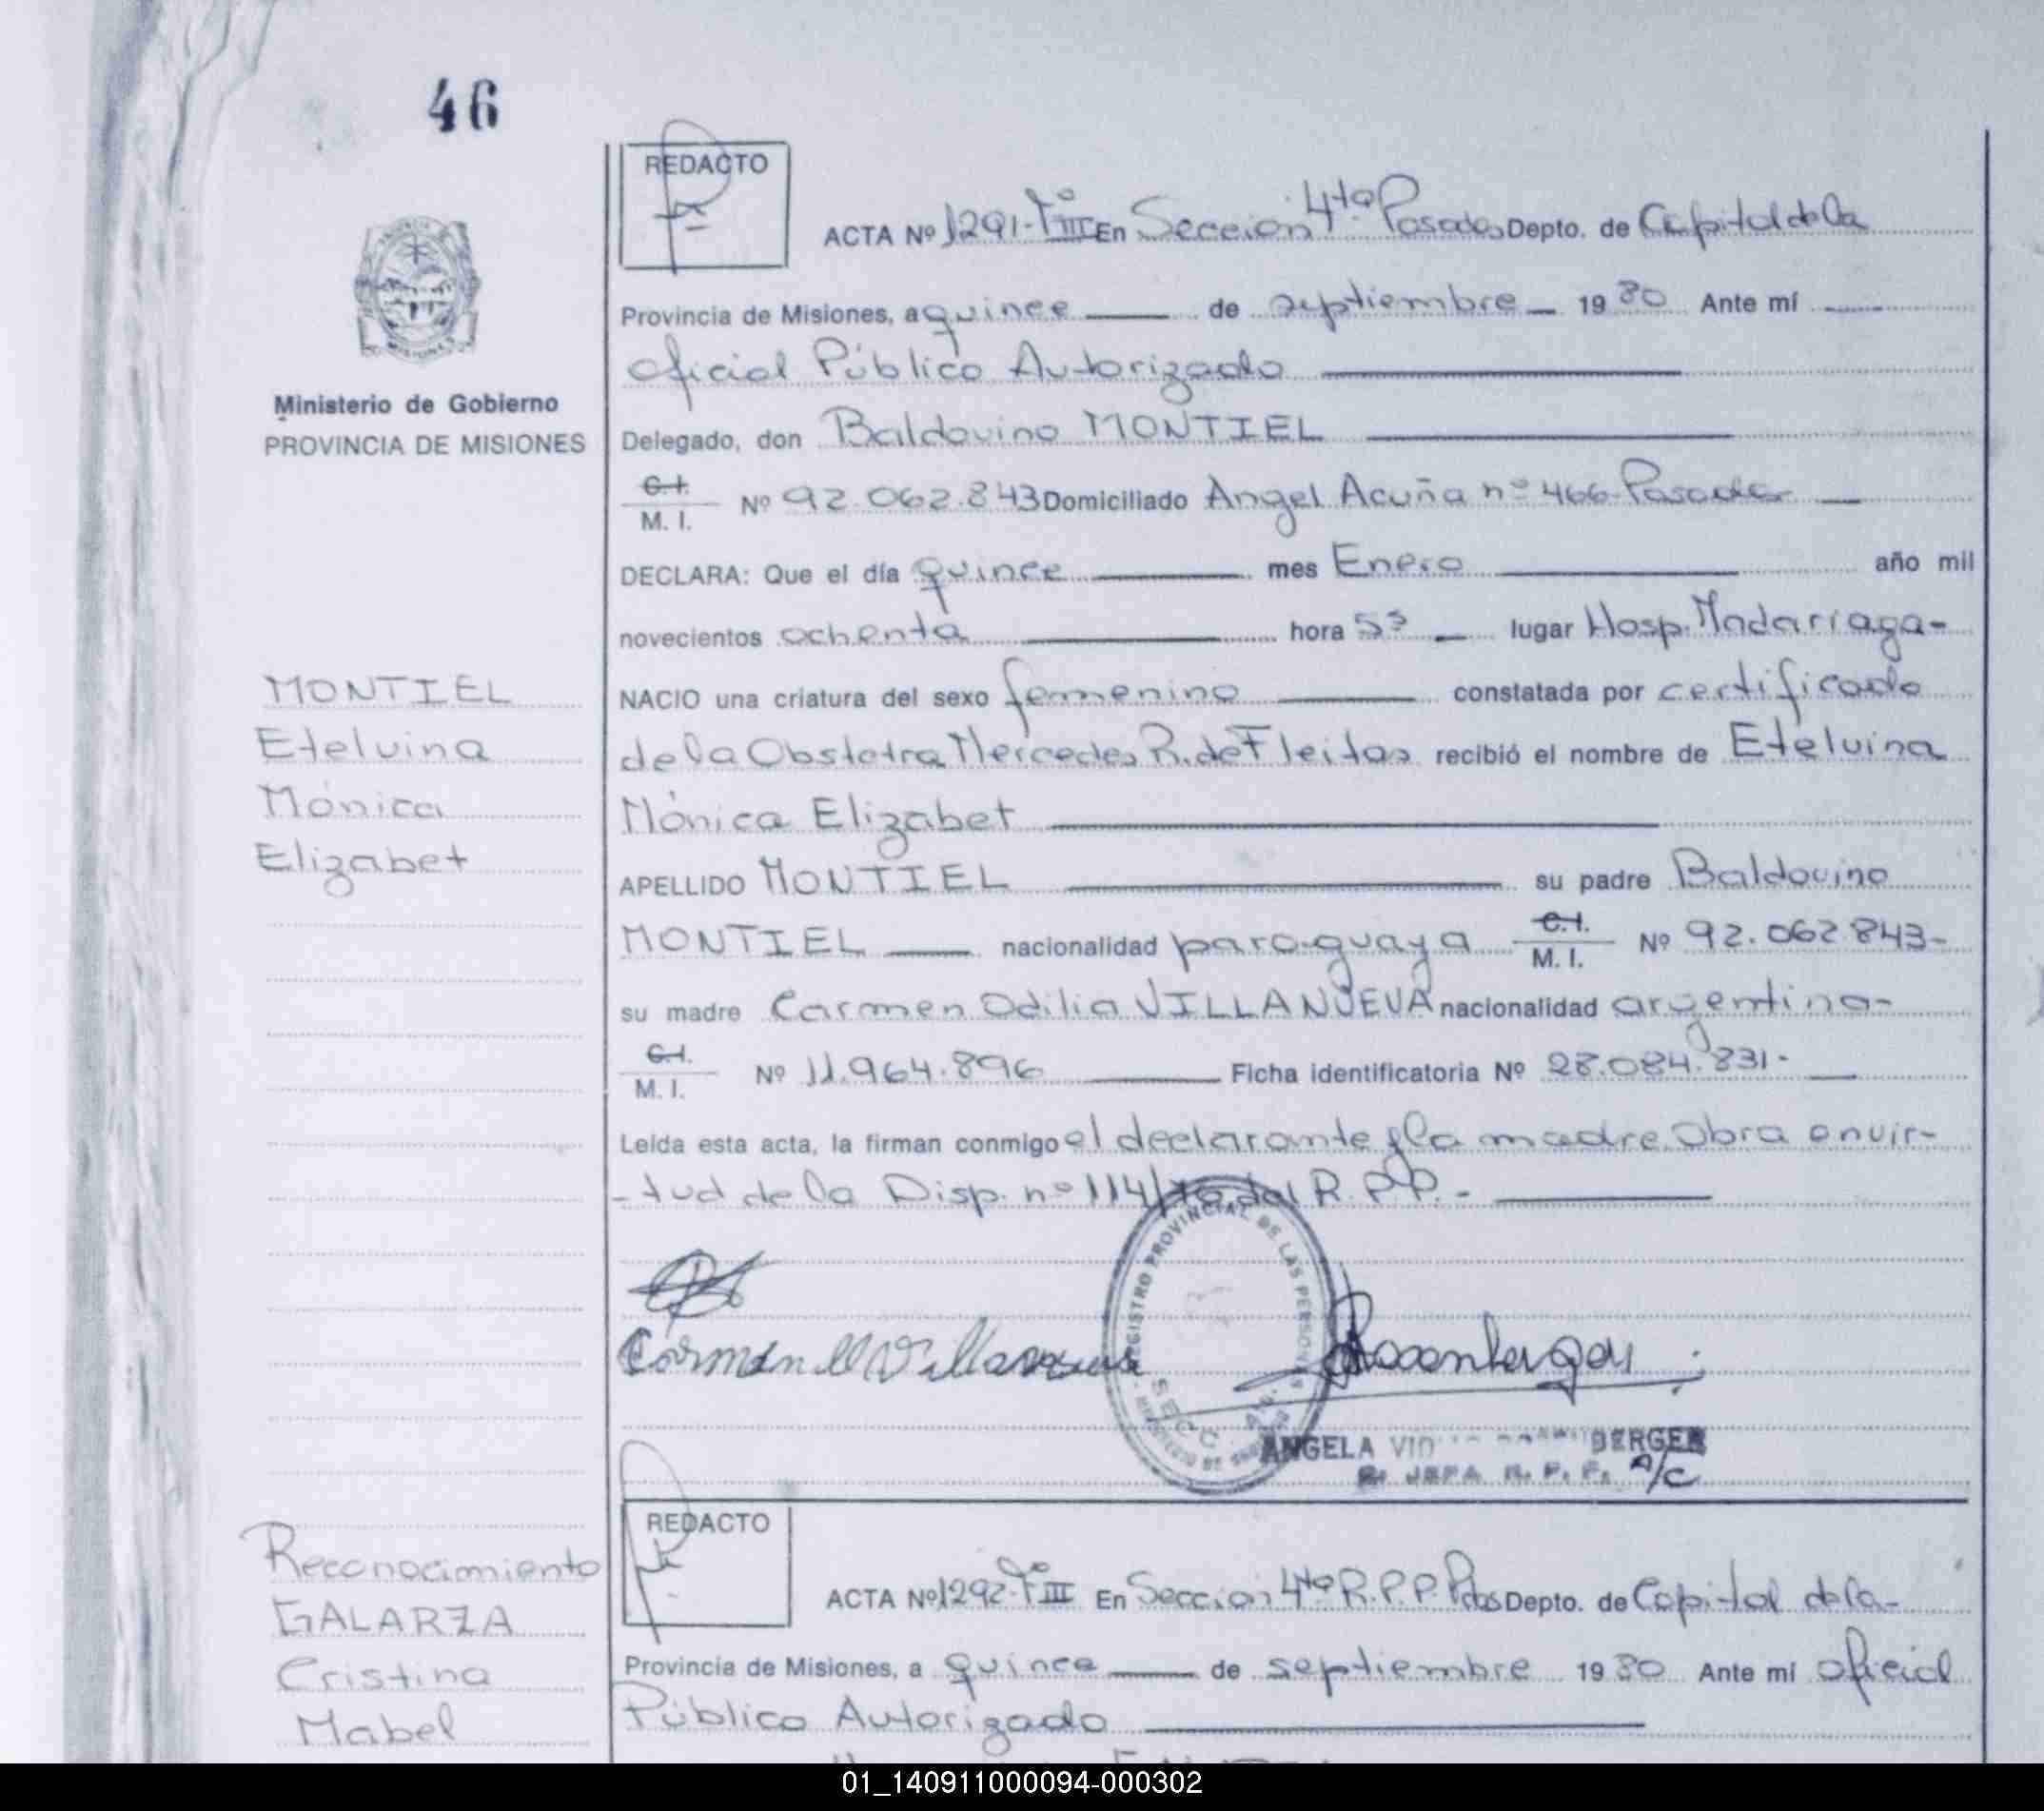 46
REDACTO
ACTA Nº 1291-TºIII En Sección 4ta Posadas Depto. de Capital de la
Provincia de Misiones, a quince de septiembre 1980 Ante mí
oficial Público Autorizado
Ministerio de Gobierno
PROVINCIA DE MISIONES
Delegado, don Baldovino MONTIEL
C.I.
M. I. Nº 92.062.843 Domiciliado Angel Acuña nº 466-Posadas
DECLARA: Que el día quince mes Enero año mil
novecientos ochenta hora 5ª lugar Hosp. Madariaga-
MONTIEL
Etelvina
Mónica
Elizabet
NACIO una criatura del sexo femenino constatada por certificado
de la Obstetra Mercedes R. de Fleitas recibió el nombre de Etelvina
Mónica Elizabet
APELLIDO MONTIEL su padre Baldovino
MONTIEL nacionalidad paraguaya C.I. M. I. Nº 92.062.843-
su madre Carmen Odilia VILLANUEVA nacionalidad argentina-
C.I.
M. I. Nº 11.964.896 Ficha identificatoria Nº 28.084.831-
Leída esta acta, la firman conmigo el declarante y la madre. Obra en vir-
-tud de la Disp. nº 114/76 del R.P.P.-
REGISTRO PROVINCIAL DE LAS PERSONAS
SECC. 4ª
Carmen Villanueva
ANGELA BERGER
JEFA R. P. P. A/C
Reconocimiento
GALARZA
Cristina
Mabel
REDACTO
ACTA Nº 1292-TºIII En Sección 4ta R.P.P. Pdas Depto. de Capital de la-
Provincia de Misiones, a quince de septiembre 1980 Ante mí oficial
Público Autorizado
01_140911000094-000302